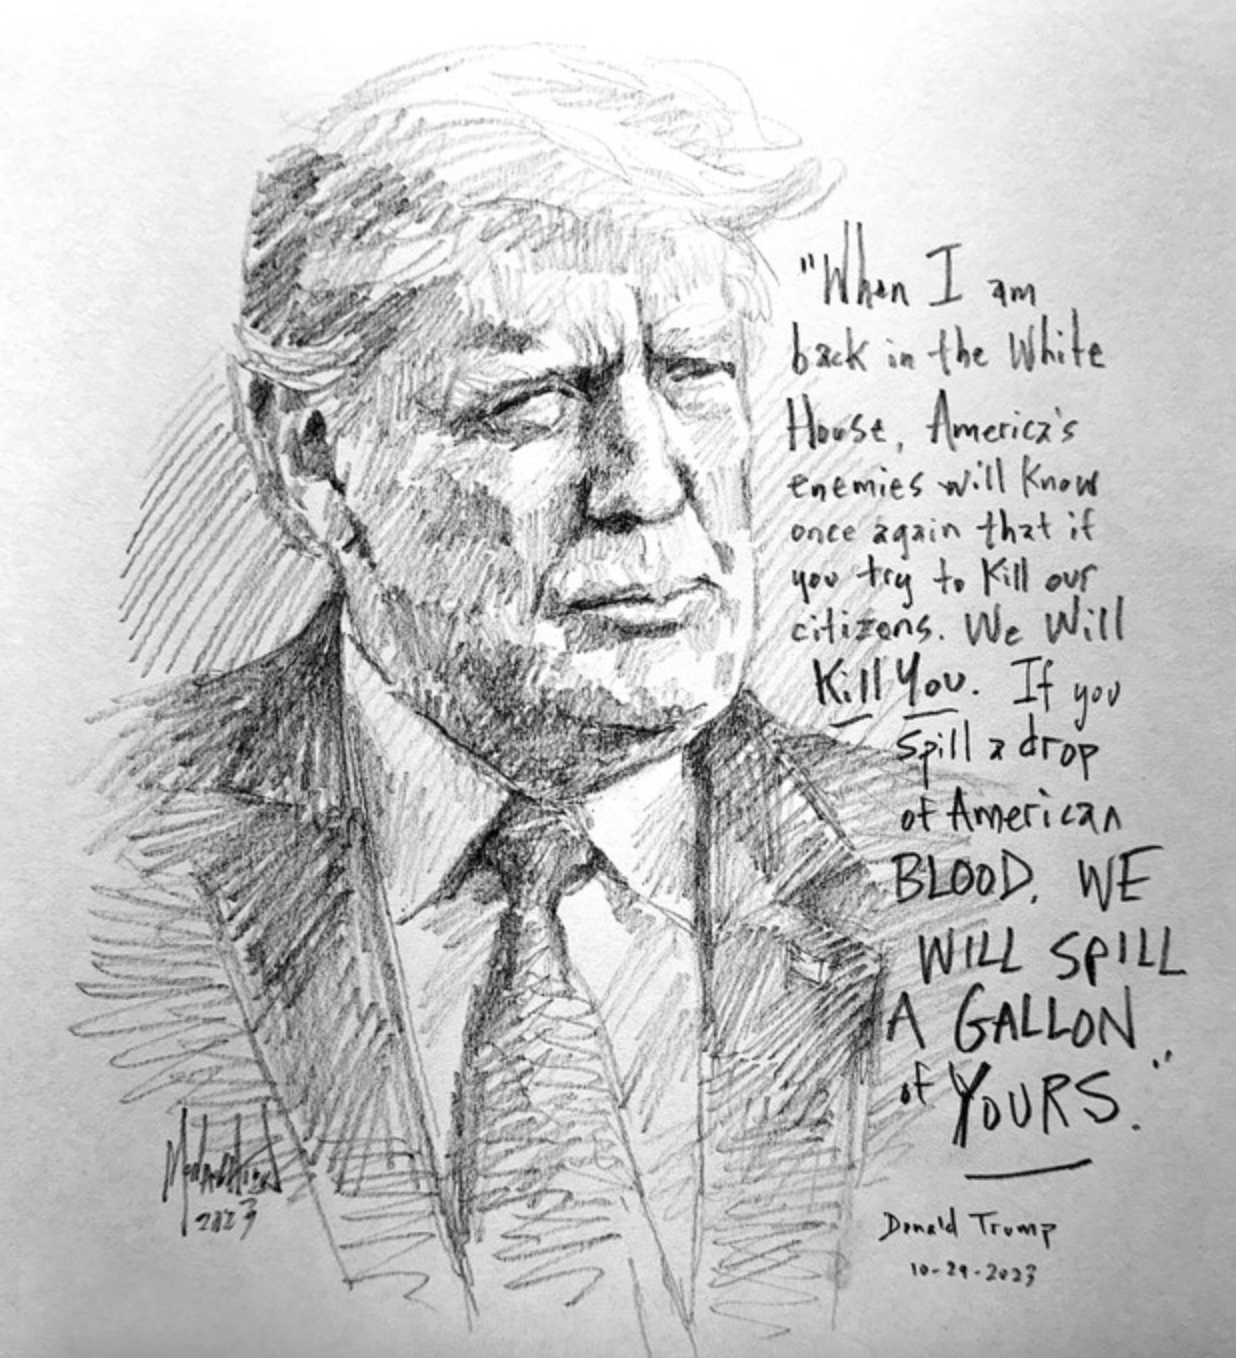 "When I am
back in the White
House, America's
enemies will know
once again that if
you try to Kill our
citizens. We Will
Kill You. If you
spill a drop
of American
BLOOD, WE
WILL SPILL
A GALLON
of YOURS."
Donald Trump
10-29-2023
2023